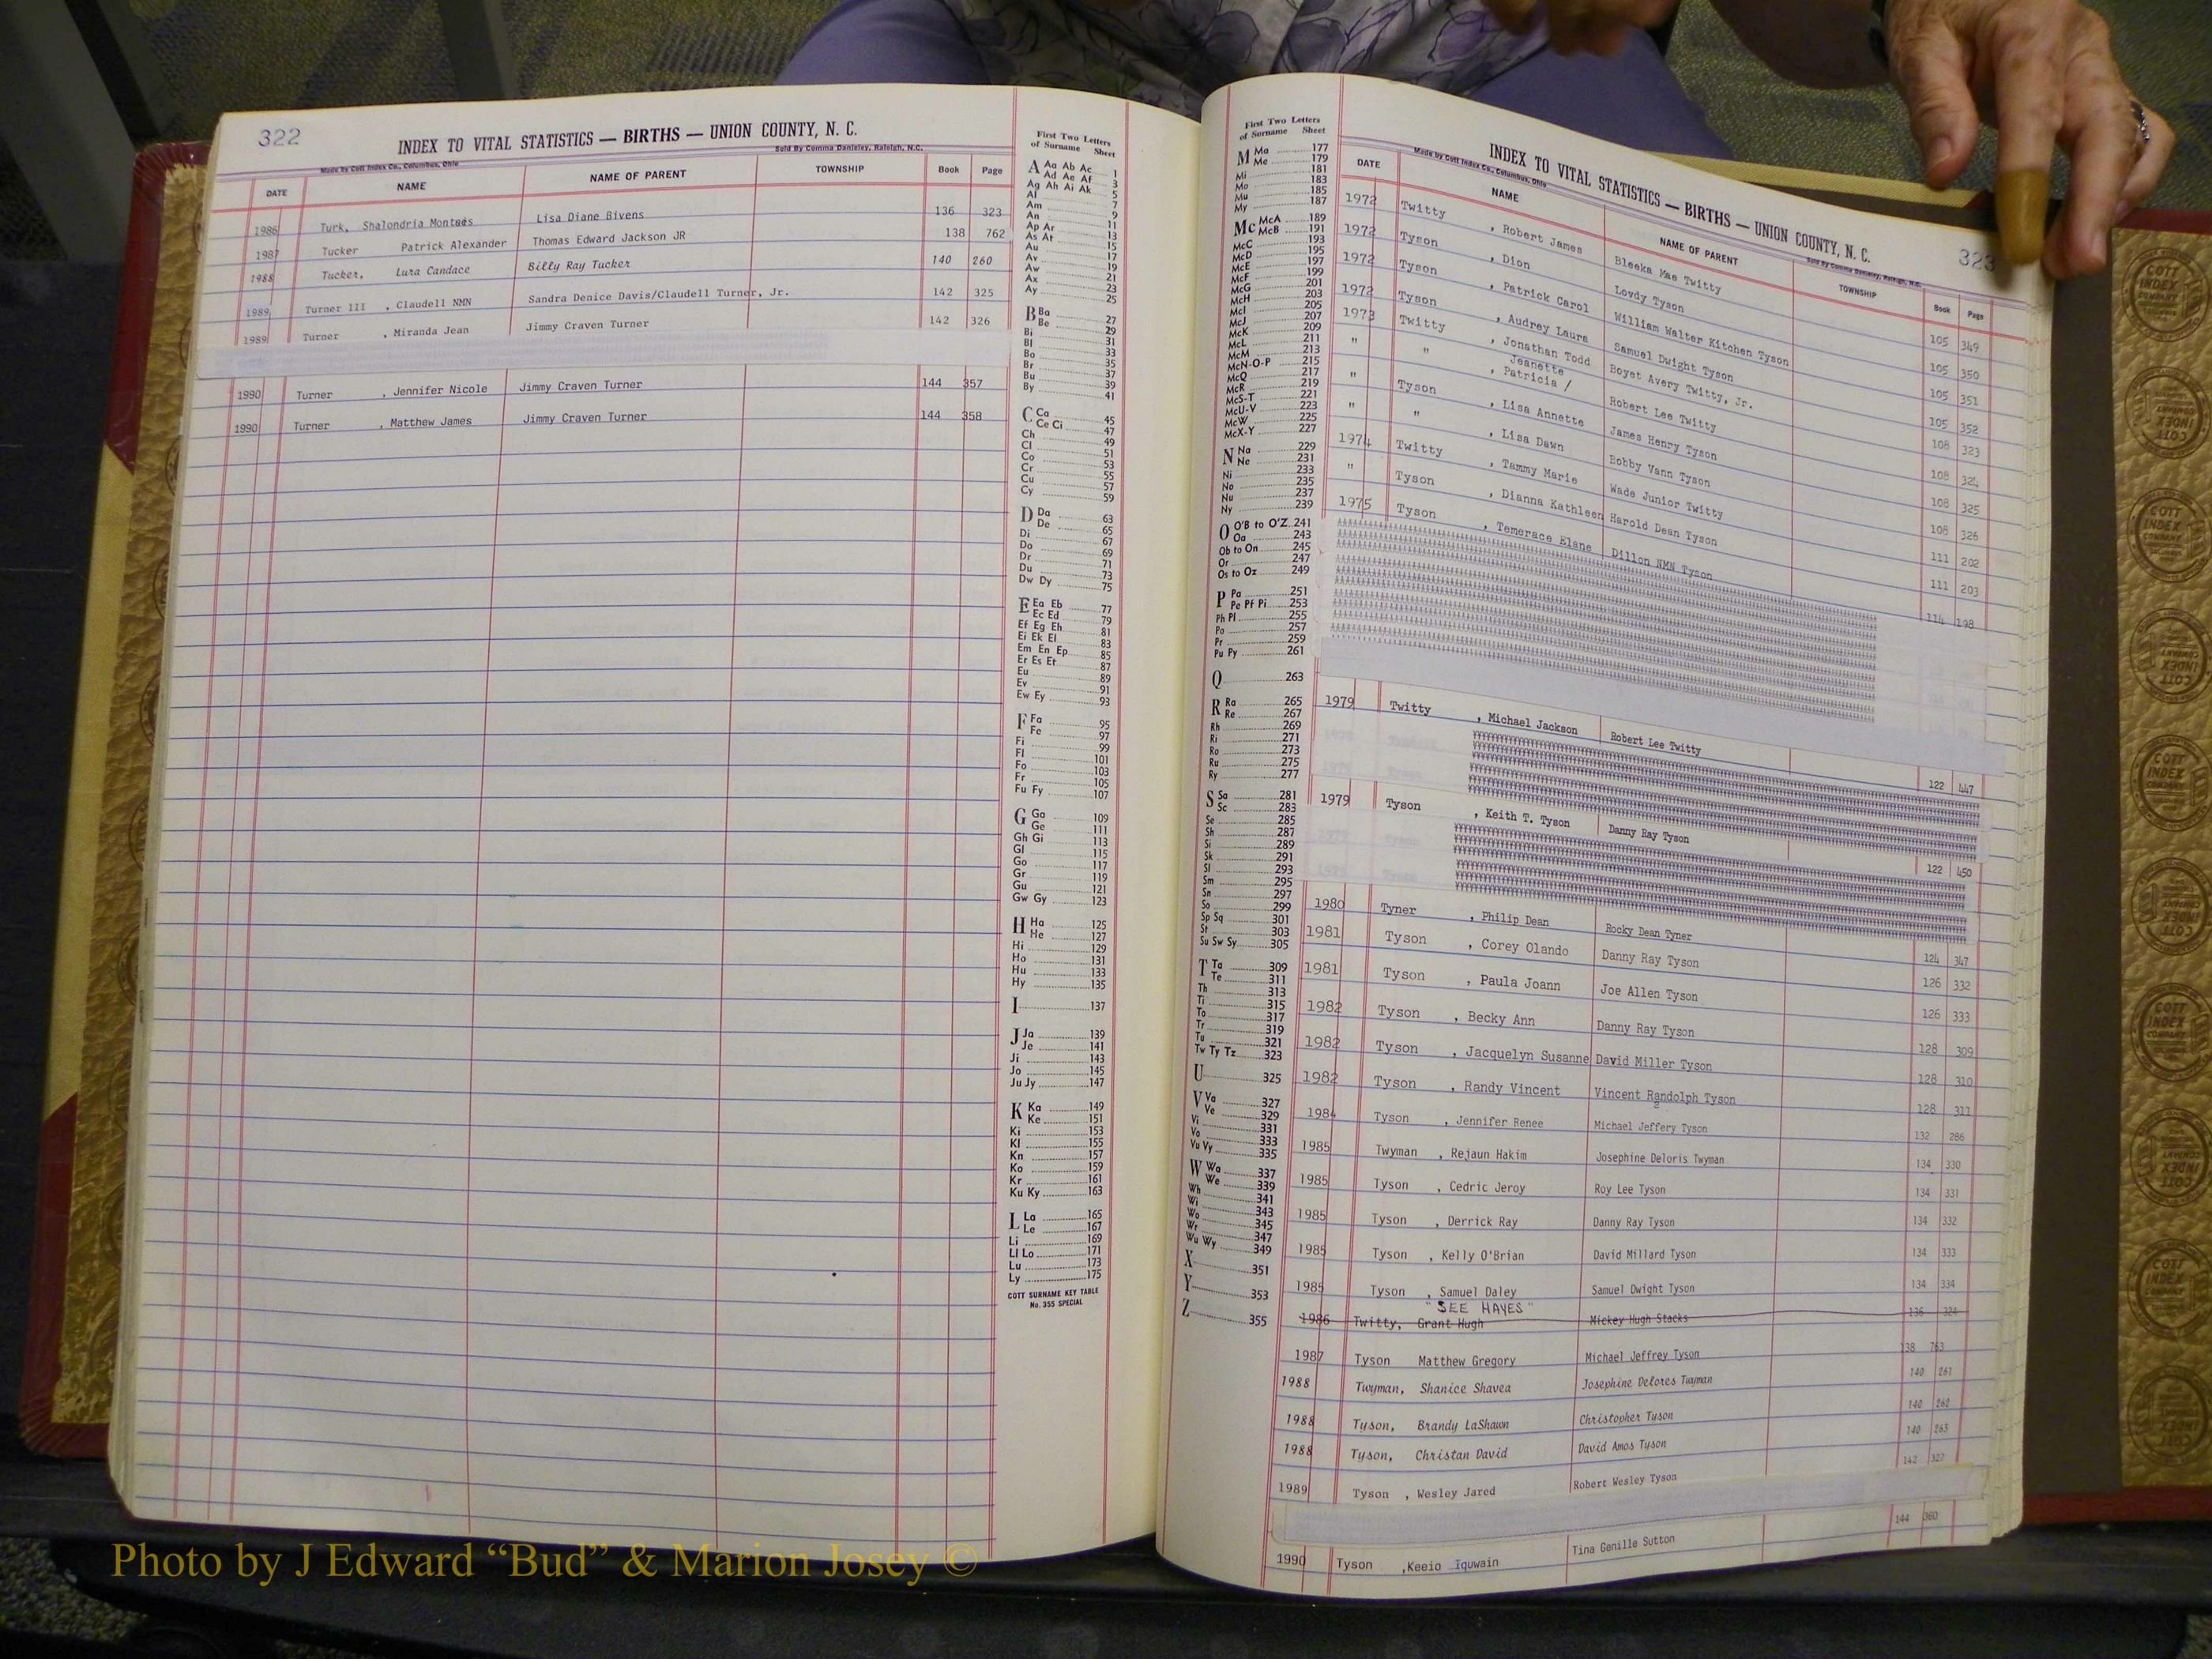 322
INDEX TO VITAL STATISTICS — BIRTHS — UNION COUNTY, N. C.
Made by Cott Index Co., Columbus, Ohio Sold By Comma Danieley, Raleigh, N.C.
DATE NAME NAME OF PARENT TOWNSHIP Book Page
1986 Turk, Shalondria Lisa Diane Bivens 136 323
1987 Tucker Patrick Alexander Thomas Edward Jackson JR 138 762
1988 Tucker, Lura Candace Billy Ray Tucker 140 260
1989 Turner III , Claudell NMN Sandra Denice Davis/Claudell Turner, Jr. 142 325
1989 Turner , Miranda Jean Jimmy Craven Turner 142 326
1990 Turner , Jennifer Nicole Jimmy Craven Turner 144 357
1990 Turner , Matthew James Jimmy Craven Turner 144 358
First Two Letters
of Surname Sheet
A Aa Ab Ac 1
Ad Ae Af 3
Ag Ah Ai Ak 5
Al 7
Am 9
An 11
Ap Ar 13
As At 15
Au 17
Av 19
Aw 21
Ax 23
Ay 25
B Ba 27
Be 29
Bi 31
Bl 33
Bo 35
Br 37
Bu 39
By 41
C Ca 45
Ce Ci 47
Ch 49
Cl 51
Co 53
Cr 55
Cu 57
Cy 59
D Da 63
De 65
Di 67
Do 69
Dr 71
Du 73
Dw Dy 75
E Ea Eb 77
Ec Ed 79
Ef Eg Eh 81
Ei Ek El 83
Em En Ep 85
Er Es Et 87
Eu 89
Ev 91
Ew Ey 93
F Fa 95
Fe 97
Fi 99
Fl 101
Fo 103
Fr 105
Fu Fy 107
G Ga 109
Ge 111
Gh Gi 113
Gl 115
Go 117
Gr 119
Gu 121
Gw Gy 123
H Ha 125
He 127
Hi 129
Ho 131
Hu 133
Hy 135
I 137
J Ja 139
Je 141
Ji 143
Jo 145
Ju Jy 147
K Ka 149
Ke 151
Ki 153
Kl 155
Kn 157
Ko 159
Kr 161
Ku Ky 163
L La 165
Le 167
Li 169
Ll Lo 171
Lu 173
Ly 175
COTT SURNAME KEY TABLE
No. 355 SPECIAL
First Two Letters
of Surname Sheet
M Ma 177
Me 179
Mi 181
Mo 183
Mu 185
My 187
Mc McA 189
McB 191
McC 193
McD 195
McE 197
McF 199
McG 201
McH 203
McI 205
McJ 207
McK 209
McL 211
McM 213
McN-O-P 215
McQ 217
McR 219
McS-T 221
McU-V 223
McW 225
McX-Y 227
N Na 229
Ne 231
Ni 233
No 235
Nu 237
Ny 239
O O'B to O'Z 241
Oa 243
Ob to On 245
Or 247
Os to Oz 249
P Pa 251
Pe Pf Pi 253
Ph Pl 255
Po 257
Pr 259
Pu Py 261
Q 263
R Ra 265
Re 267
Rh 269
Ri 271
Ro 273
Ru 275
Ry 277
S Sa 281
Sc 283
Se 285
Sh 287
Si 289
Sk 291
Sl 293
Sm 295
Sn 297
So 299
Sp Sq 301
St 303
Su Sw Sy 305
T Ta 309
Te 311
Th 313
Ti 315
To 317
Tr 319
Tu 321
Tw Ty Tz 323
U 325
V Va 327
Ve 329
Vi 331
Vo 333
Vu Vy 335
W Wa 337
We 339
Wh 341
Wi 343
Wo 345
Wr 347
Wu Wy 349
X 351
Y 353
Z 355
INDEX TO VITAL STATISTICS — BIRTHS — UNION COUNTY, N. C.
323
Made by Cott Index Co., Columbus, Ohio Sold By Comma Danieley, Raleigh, N.C.
DATE NAME NAME OF PARENT TOWNSHIP Book Page
1972 Twitty , Robert James Bleeka Mae Twitty 105 349
1972 Tyson , Dion Lovdy Tyson 105 350
1972 Tyson , Patrick Carol William Walter Kitchen Tyson 105 351
1972 Tyson , Audrey Laura Samuel Dwight Tyson 105 352
1973 Twitty , Jonathan Todd Boyet Avery Twitty, Jr. 108 323
Jeanette
" " , Patricia / Robert Lee Twitty 108 324
" Tyson , Lisa Annette James Henry Tyson 108 325
" " , Lisa Dawn Bobby Vann Tyson 108 326
1974 Twitty , Tammy Marie Wade Junior Twitty 111 202
" Tyson , Dianna Kathleen Harold Dean Tyson 111 203
1975 Tyson , Temerace Elane Dillon NMN Tyson 114 198
1979 Twitty , Michael Jackson Robert Lee Twitty 122 447
1979 Tyson , Keith T. Tyson Danny Ray Tyson 122 450
1980 Tyner , Philip Dean Rocky Dean Tyner 124 347
1981 Tyson , Corey Olando Danny Ray Tyson 126 332
1981 Tyson , Paula Joann Joe Allen Tyson 126 333
1982 Tyson , Becky Ann Danny Ray Tyson 128 309
1982 Tyson , Jacquelyn Susanne David Miller Tyson 128 310
1982 Tyson , Randy Vincent Vincent Randolph Tyson 128 311
1984 Tyson , Jennifer Renee Michael Jeffery Tyson 132 286
1985 Twyman , Rejaun Hakim Josephine Deloris Twyman 134 330
1985 Tyson , Cedric Jeroy Roy Lee Tyson 134 331
1985 Tyson , Derrick Ray Danny Ray Tyson 134 332
1985 Tyson , Kelly O'Brian David Millard Tyson 134 333
1985 Tyson , Samuel Daley Samuel Dwight Tyson 134 334
"SEE HAYES"
1986 Twitty, Grant Hugh Mickey Hugh Stacks 136 324
1987 Tyson Matthew Gregory Michael Jeffrey Tyson 138 763
1988 Twyman, Shanice Shavea Josephine Delores Twyman 140 261
1988 Tyson, Brandy LaShawn Christopher Tyson 140 262
1988 Tyson, Christan David David Amos Tyson 140 263
1989 Tyson , Wesley Jared Robert Wesley Tyson 142 327
1990 Tyson ,Keeio Iquwain Tina Genille Sutton 144 360
Photo by J Edward “Bud” & Marion Josey ©
COTT
INDEX
COMPANY